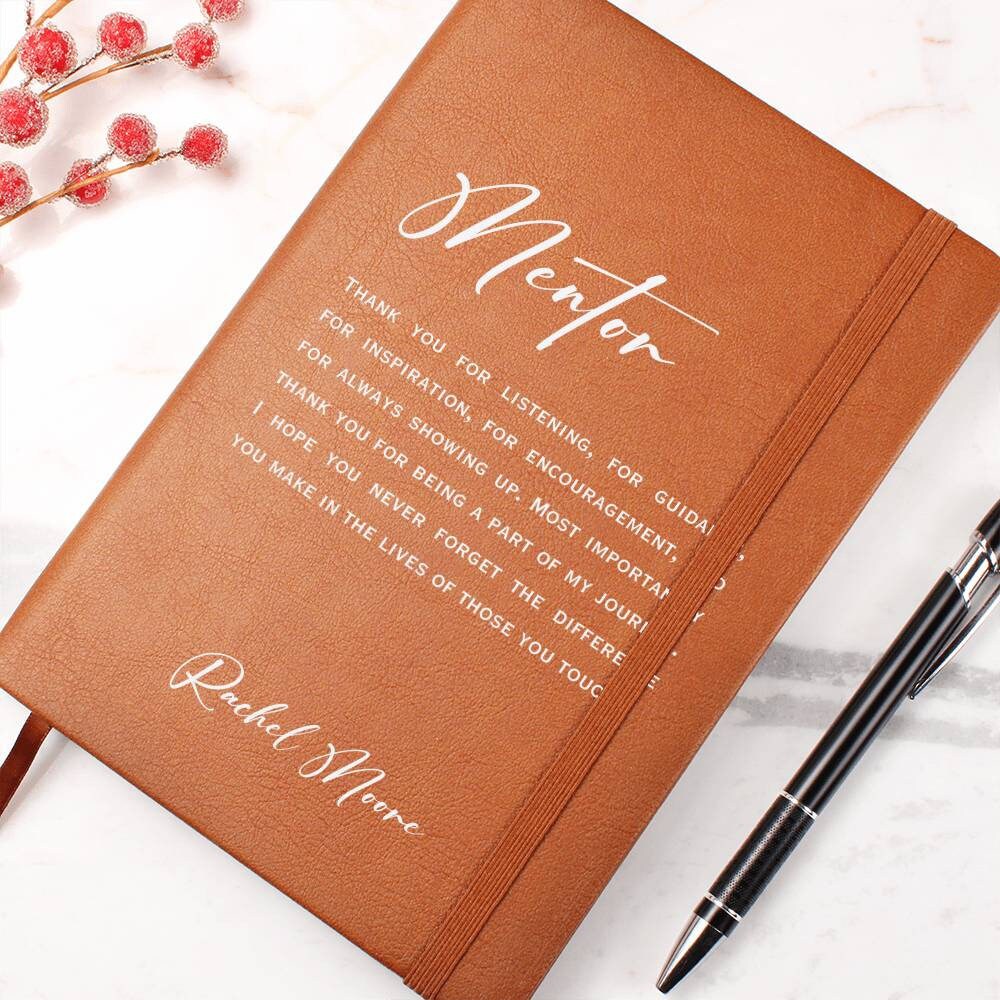 Mentor
THANK YOU FOR LISTENING, FOR GUIDANCE,
FOR INSPIRATION, FOR ENCOURAGEMENT,
FOR ALWAYS SHOWING UP. MOST IMPORTANTLY
THANK YOU FOR BEING A PART OF MY JOURNEY.
I HOPE YOU NEVER FORGET THE DIFFERENCE
YOU MAKE IN THE LIVES OF THOSE YOU
Rachel Moore